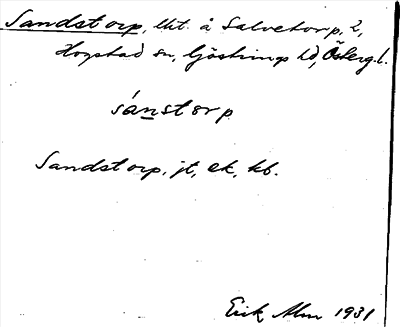 Sandstorp, lht. å Salvetorp, 2,
Hogstad sn, Göstrings hd, Österg. l.
sánstorp
Sandstorp, jt, ek, kb.
Erik Alm 1931